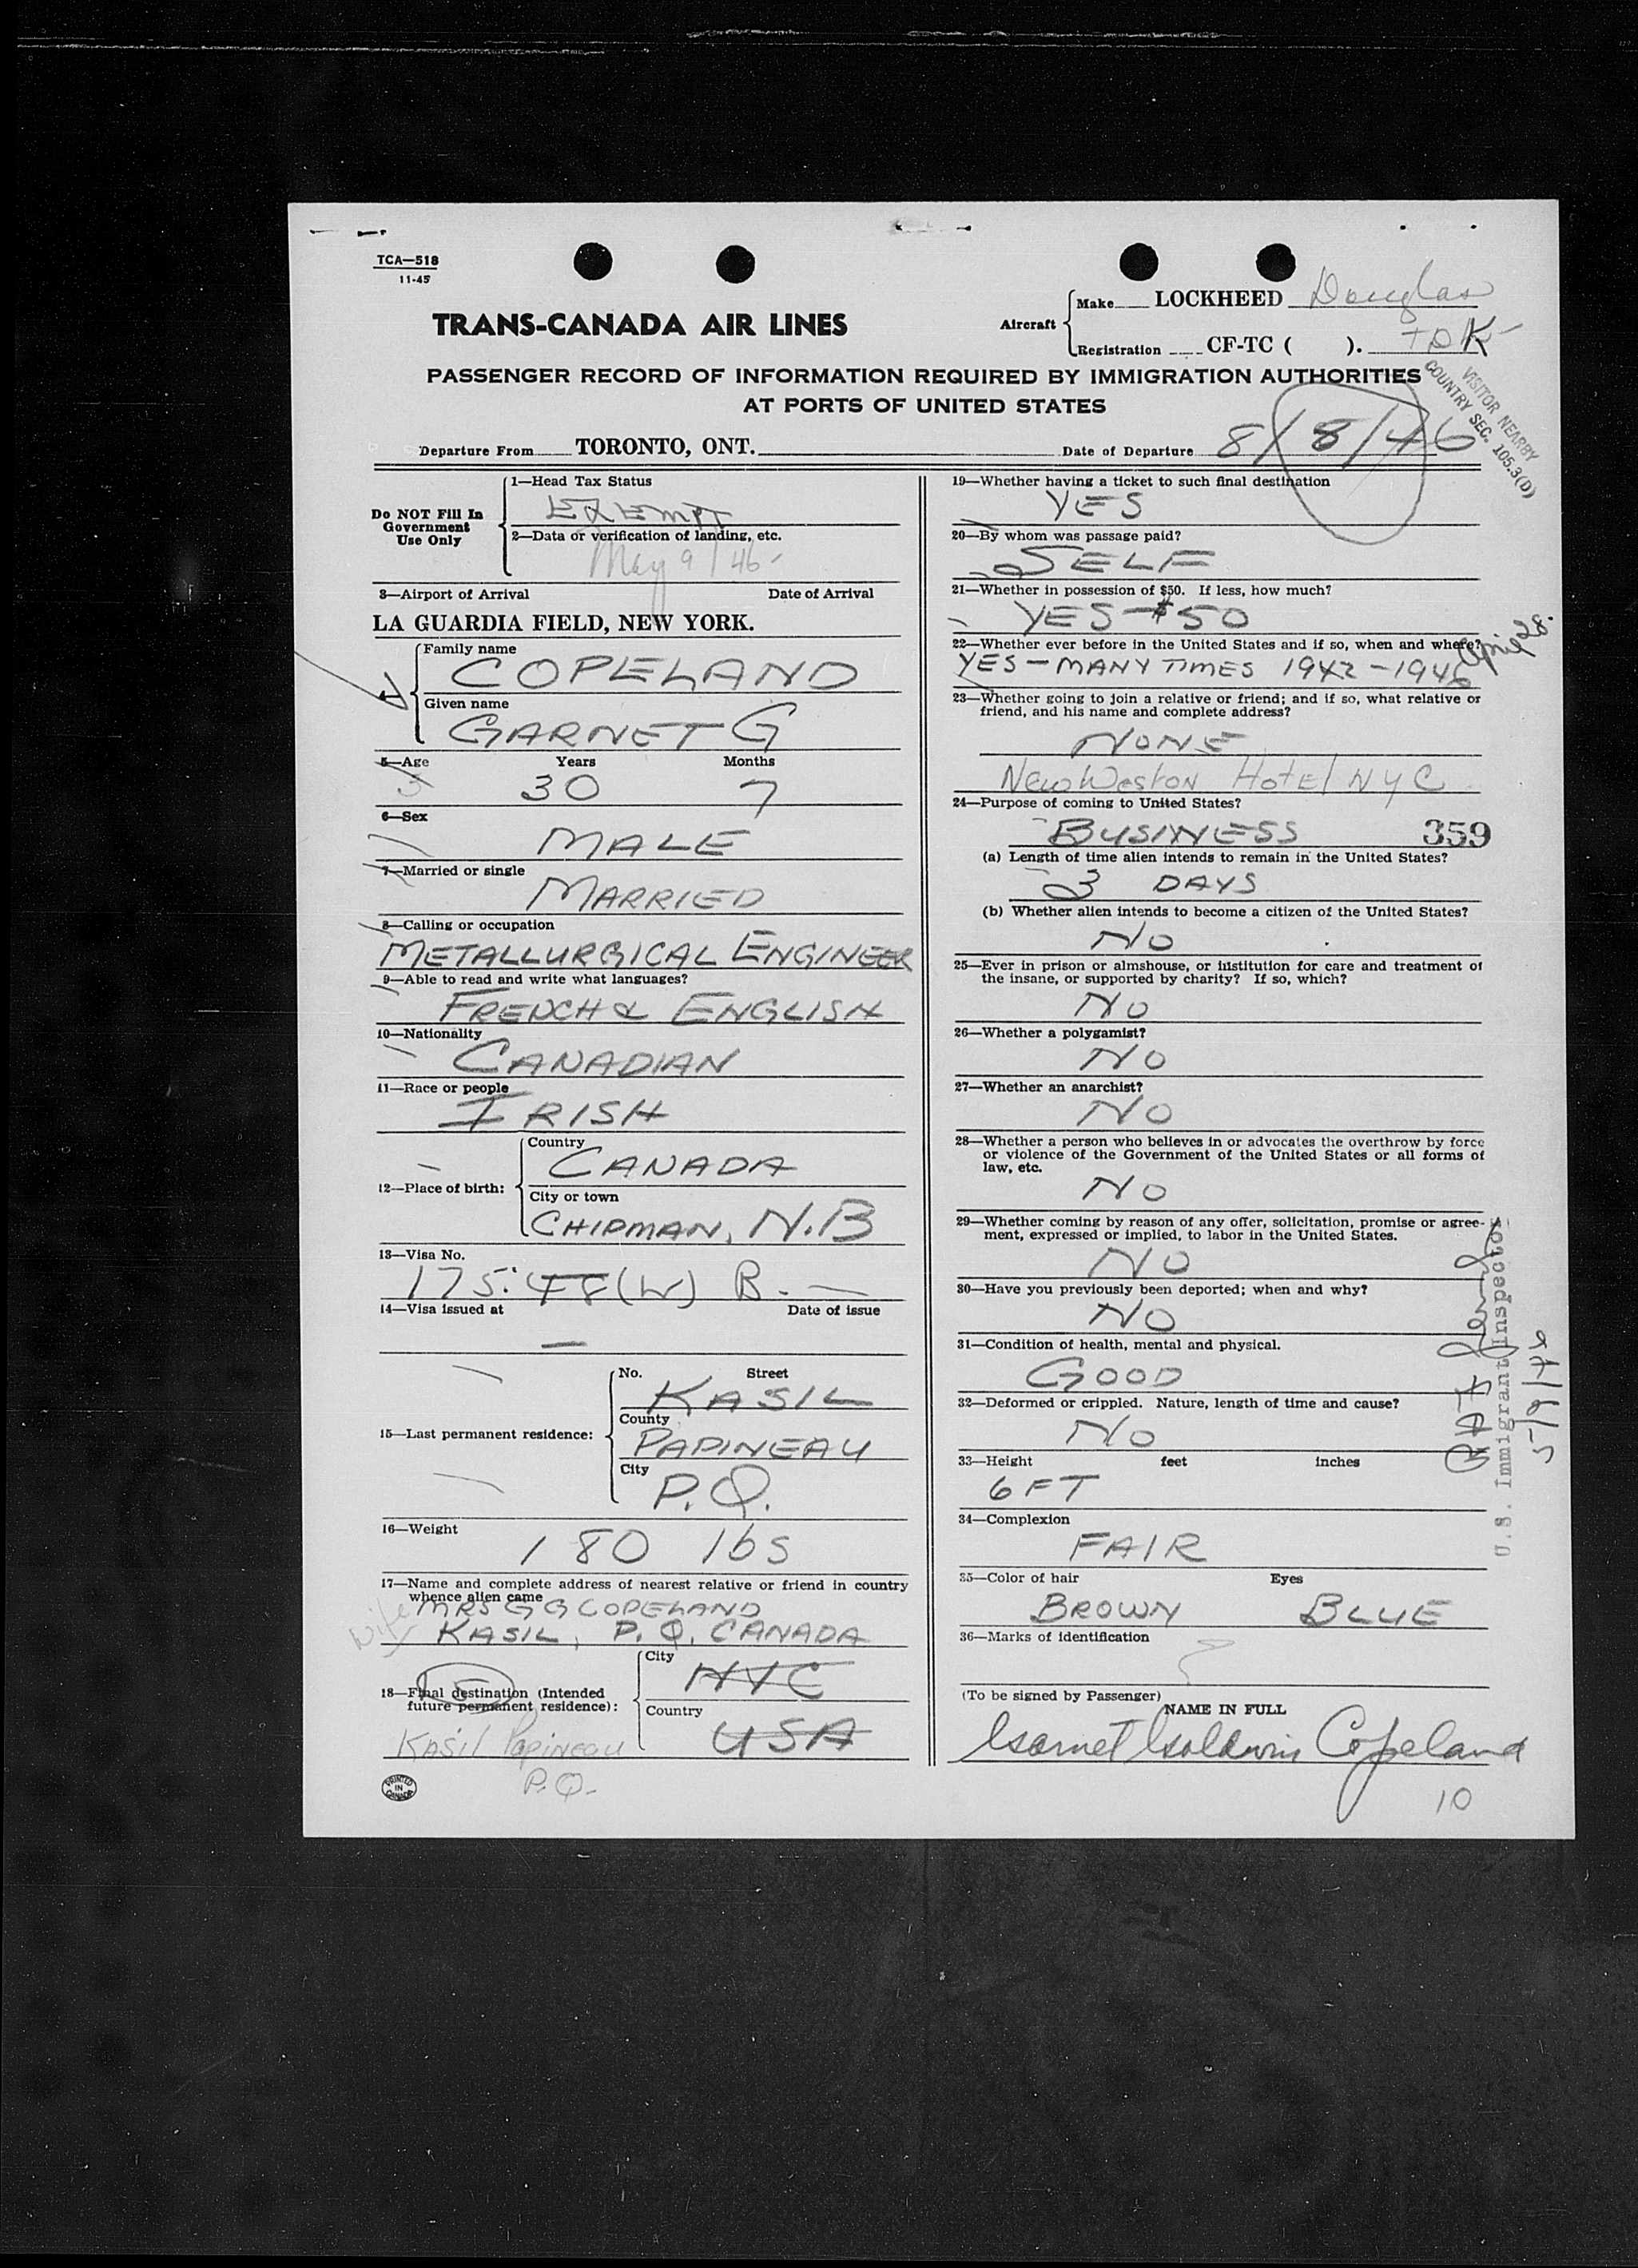 TCA—518
11-45
TRANS-CANADA AIR LINES
Aircraft
Make LOCKHEED Douglas
Registration CF-TC ( ). TDK
PASSENGER RECORD OF INFORMATION REQUIRED BY IMMIGRATION AUTHORITIES
AT PORTS OF UNITED STATES
VISITOR NEARBY
COUNTRY SEC. 105.3(D)
Departure From TORONTO, ONT. Date of Departure 8/8/46
Do NOT Fill In
Government
Use Only
1—Head Tax Status
EXEMPT
2—Data or verification of landing, etc.
May 9/46
3—Airport of Arrival Date of Arrival
LA GUARDIA FIELD, NEW YORK.
Family name
COPELAND
Given name
GARNET G
5—Age Years Months
30 7
6—Sex
MALE
7—Married or single
MARRIED
8—Calling or occupation
METALLURGICAL ENGINEER
9—Able to read and write what languages?
FRENCH & ENGLISH
10—Nationality
CANADIAN
11—Race or people
IRISH
12—Place of birth:
Country
CANADA
City or town
CHIPMAN, N.B
13—Visa No.
175.48(W) B.—
14—Visa issued at Date of issue
—
15—Last permanent residence:
No. Street
KASIL
County
PAPINEAU
City
P.Q.
16—Weight
180 lbs
17—Name and complete address of nearest relative or friend in country
whence alien came
wife MRS G G COPELAND
KASIL, P.Q. CANADA
18—Final destination (Intended
future permanent residence):
City
NYC
Country
USA
KASIL Papineau
P.Q.
PRINTED
IN
CANADA
19—Whether having a ticket to such final destination
YES
20—By whom was passage paid?
SELF
21—Whether in possession of $50. If less, how much?
YES—$50
22—Whether ever before in the United States and if so, when and where?
YES—MANY TIMES 1942-1946 April 28.
23—Whether going to join a relative or friend; and if so, what relative or
friend, and his name and complete address?
NONE
New Weston Hotel NYC
24—Purpose of coming to United States?
BUSINESS 359
(a) Length of time alien intends to remain in the United States?
3 DAYS
(b) Whether alien intends to become a citizen of the United States?
NO
25—Ever in prison or almshouse, or institution for care and treatment of
the insane, or supported by charity? If so, which?
NO
26—Whether a polygamist?
NO
27—Whether an anarchist?
NO
28—Whether a person who believes in or advocates the overthrow by force
or violence of the Government of the United States or all forms of
law, etc.
NO
29—Whether coming by reason of any offer, solicitation, promise or agree-
ment, expressed or implied, to labor in the United States.
NO
30—Have you previously been deported; when and why?
NO
31—Condition of health, mental and physical.
GOOD
32—Deformed or crippled. Nature, length of time and cause?
NO
33—Height feet inches
6 FT
34—Complexion
FAIR
35—Color of hair Eyes
BROWN BLUE
36—Marks of identification
(To be signed by Passenger)
NAME IN FULL
Garnet Goldwin Copeland
10
U.S. Immigrant Inspector
5/9/46